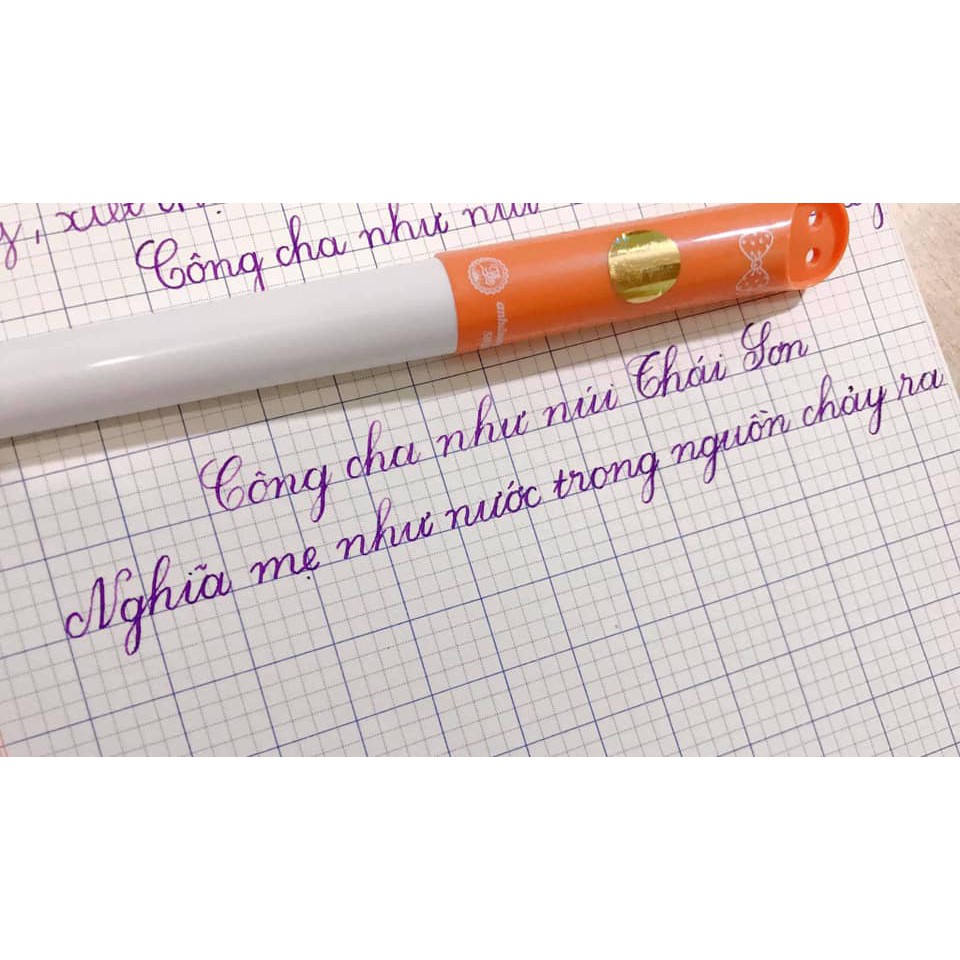 Công cha như núi
Công cha như núi Thái Sơn
Nghĩa mẹ như nước trong nguồn chảy ra